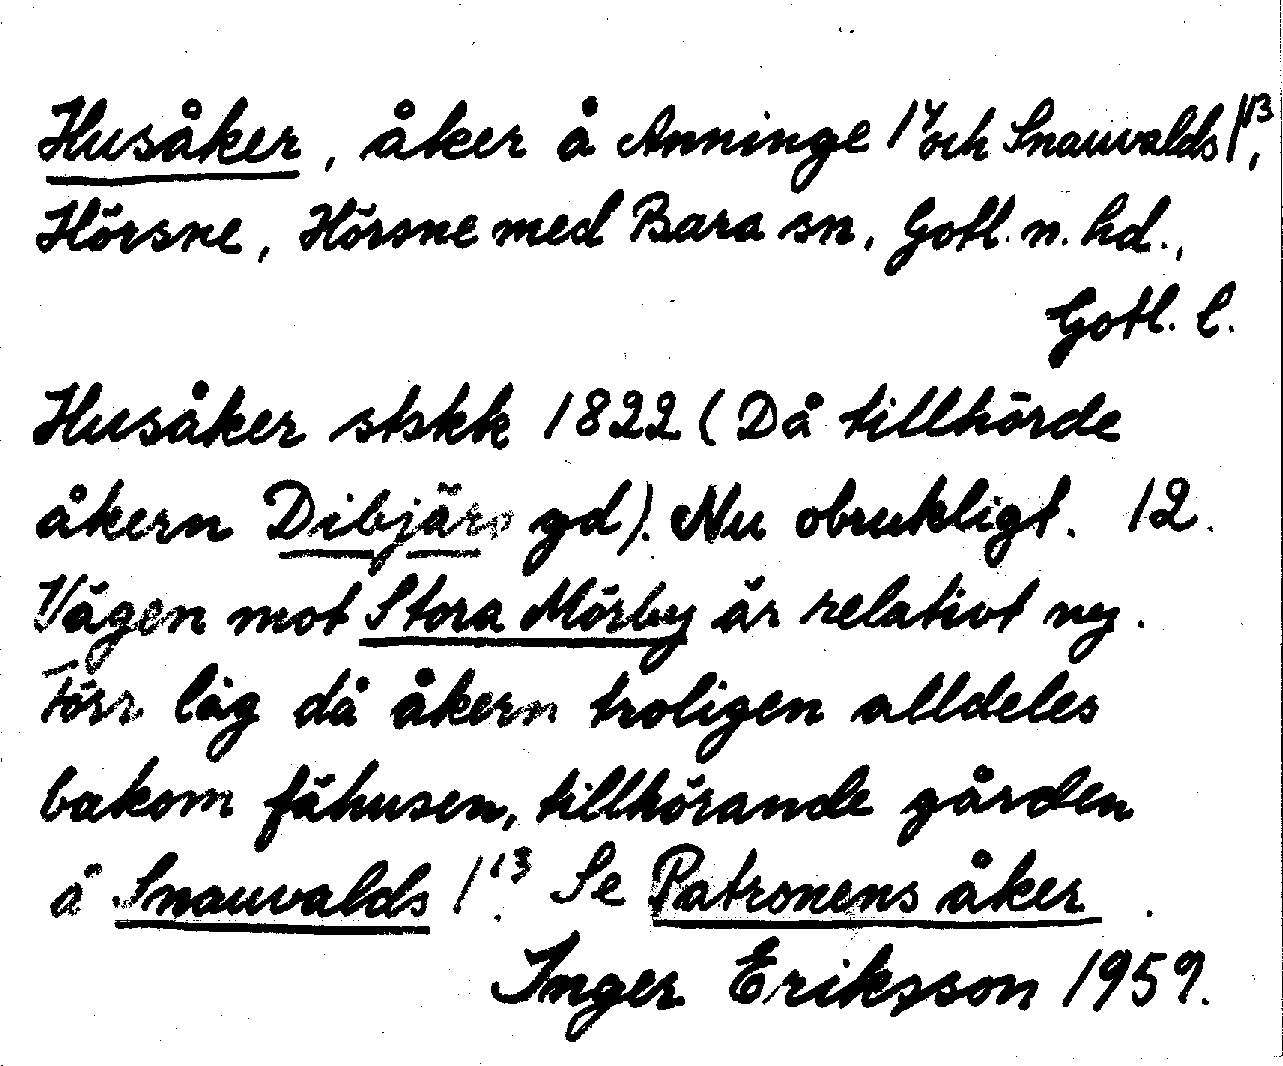 Husåker, åker å Anninge 1⁴ och Snauvalds 1¹³,
Hörsne, Hörsne med Bara sn, Gotl. n. hd.,
Gotl. l.
Husåker stskk 1822 (Då tillhörde
åkern Dibjärs gd). Nu obrukligt. 12.
Vägen mot Stora Mörby är relativt ny.
Förr låg då åkern troligen alldeles
bakom fähusen, tillhörande gården
å Snauvalds 1¹³. Se Patronens åker.
Inger Eriksson 1959.